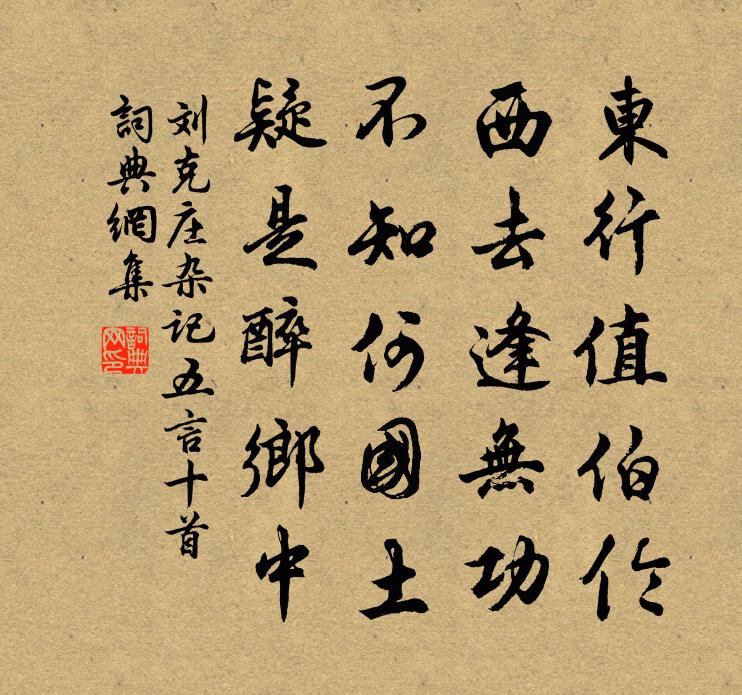 東行值伯伶
西去逢無功
不知何國土
疑是醉鄉中
刘克庄杂记五言十首
詞典網集
詞典网印